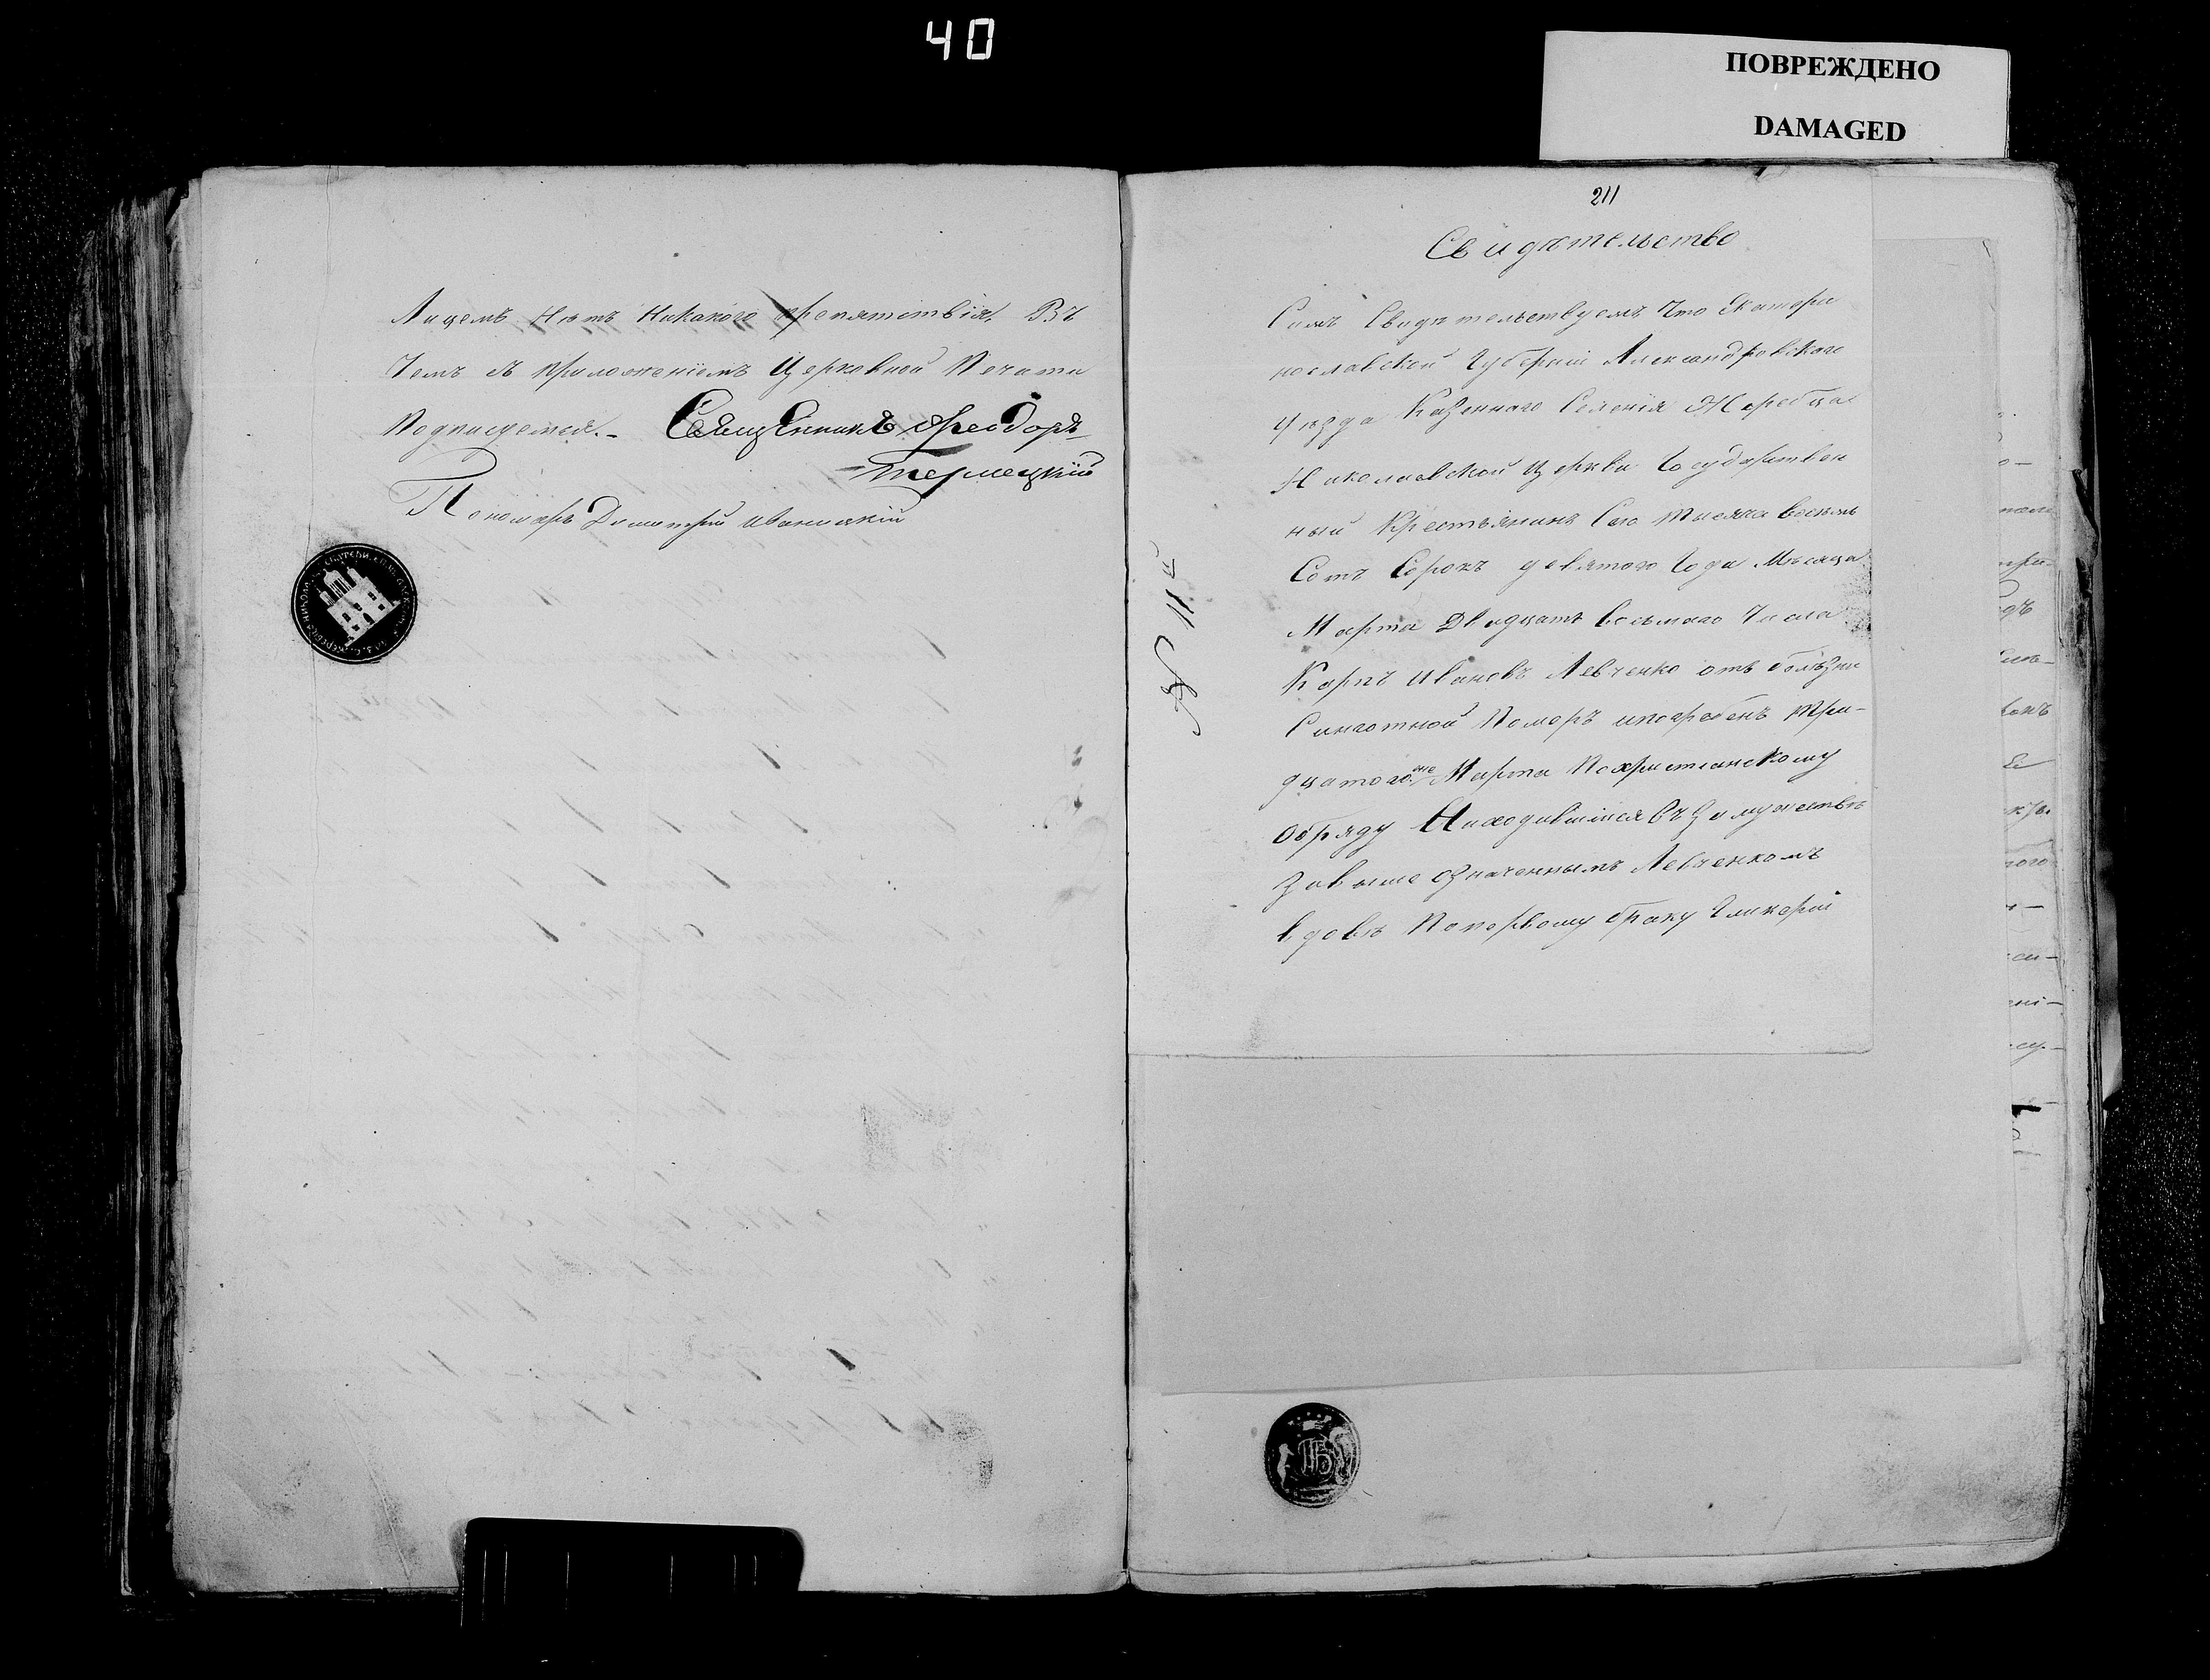 40
ПОВРЕЖДЕНО
DAMAGED
Лицемъ нѣтъ никакого препятствія, Въ
чемъ съ приложеніемъ Церковной Печати
Подписуемся.-
Священникъ Феодоръ
Пономарь Димитрій Иваницкій
211
Свидѣтельство
Симъ Свидѣтельствуемъ Что Екатери
нославской Губерніи Александровского
уѣзда Казенного Селенія Жеребца
Николаевской Церкви Государствен
ный Крестьянинъ Сего Тысяча восемь
Сотъ Сорокъ девятого Года Мѣсяца
Марта Двадцать Восьмого Числа
Карпъ Ивановъ Левченко отъ болѣзни
Померъ ипогребенъ Три-
дцатого Марта Похристіанскому
Обряду Находившійся въ Замужествѣ
Завыше означеннымъ Левченкомъ
вдовѣ Попервому браку Гликеріи